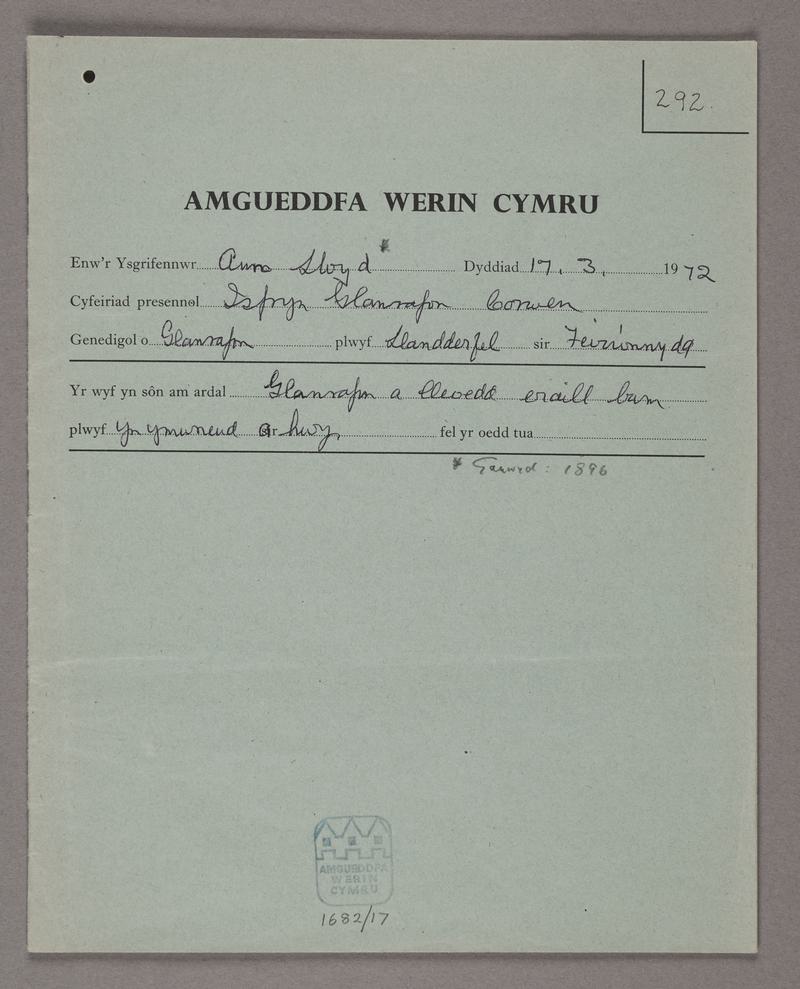 292.
AMGUEDDFA WERIN CYMRU
Enw'r Ysgrifennwr Anna Lloyd * Dyddiad 17. 3. 1972
Cyfeiriad presennol Isfryn Glanrafon Corwen
Genedigol o Glanrafon plwyf Llandderfel sir Feirionnydd
Yr wyf yn sôn am ardal Glanrafon a lleoedd eraill bum
plwyf yn ymwneud ar hwy, fel yr oedd tua
* Ganwyd: 1896
AMGUEDDFA
WERIN
CYMRU
1682/17